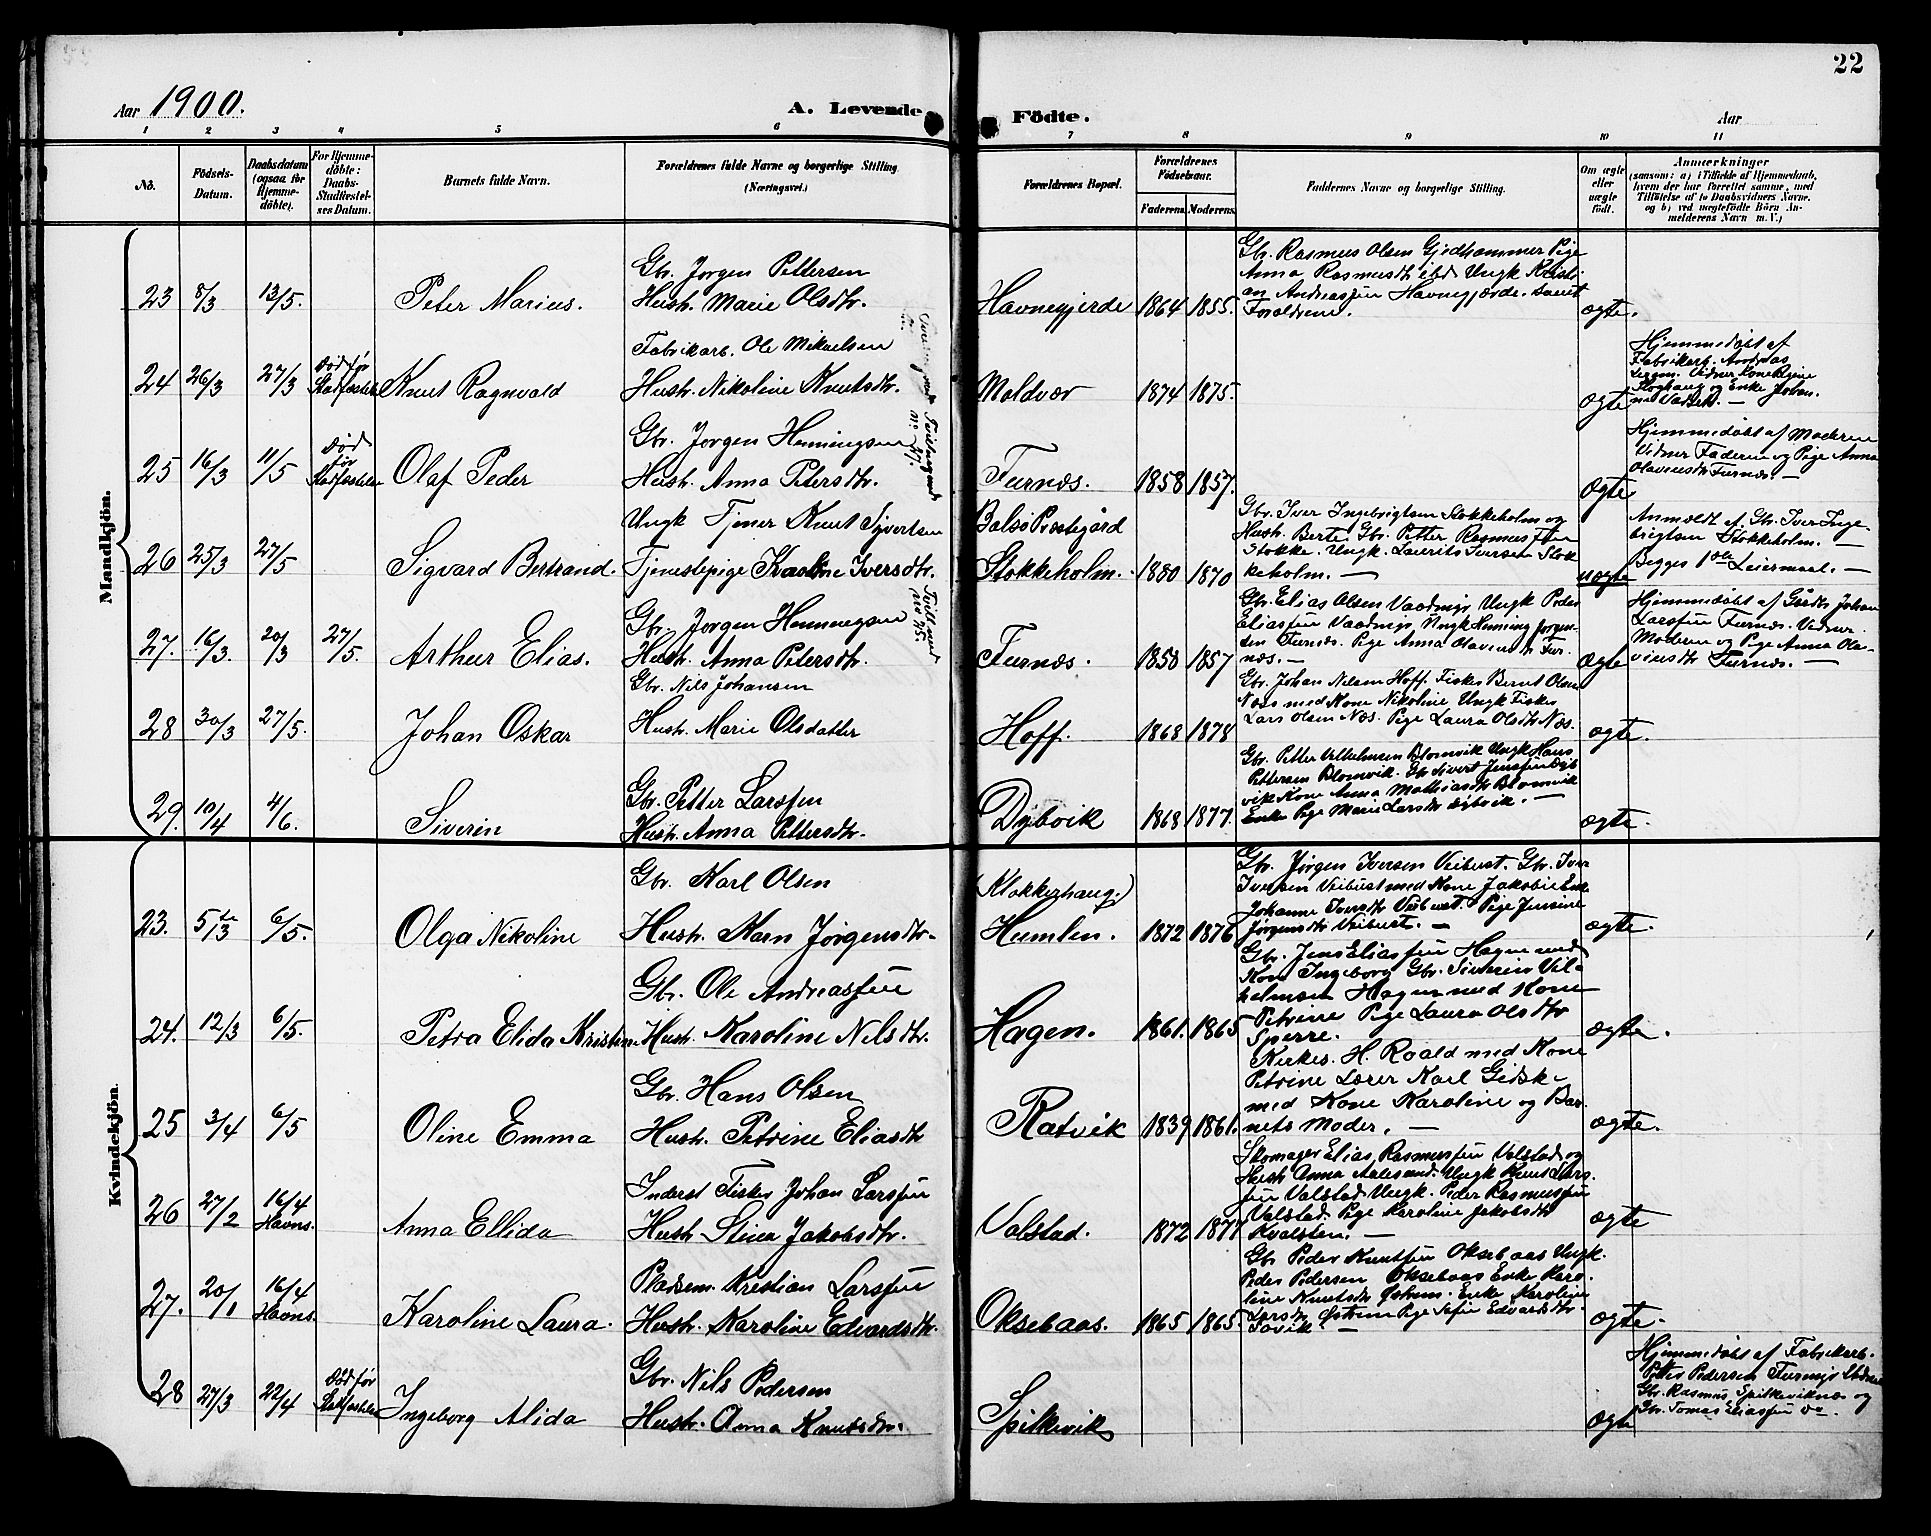 22
Aar 1900.
A. Levende Födte.
Aar
1 2 3 4 5 6 7 8 9 10 11
No.
Födsels-Datum.
Daabsdatum (ogsaa for Hjemme-döbte).
For Hjemme-döbte: Daabs-Stadfæstel-ses Datum.
Barnets fulde Navn.
Forældrenes fulde Navne og borgerlige Stilling (Næringsvei.)
Forældrenes Bopæl.
Forældrenes Födselsaar.
Faderens. Moderens.
Faddernes Navne og borgerlige Stilling.
Om ægte eller uægte födt.
Anmærkninger
(saasom: a) i Tilfælde af Hjemmedaab, hvem der har forrettet samme, med Tilföielse af to Daabsvidners Navne, og b) ved uægtefödte Börn An-melderens Navn m. V.)
Mandkjön.
23 8/3 13/5. Peter Marius.
Gbr. Jørgen Pettersen
Hustr. Marie Olsdtr.
Havnegjerde 1864 1855.
Gbr. Rasmus Olsen Gjedhammer Pige
Anna Rasmusdtr ibd Ungk Kristi-
an Andreassen Havnegjærde. samt
Forældrene.
ægte.
24 26/3 27/3 Død før Stadfæstelse Knut Ragnvald
Fabrikarb. Ole Mikaelsen
Hustr. Nikoline Knutsdtr.
Moldvær 1874 1875.
ægte
Hjemmedøbt af
Fabrikarb. Andreas
og Enke Johan-
25 16/3 11/5 Død før Stadfæstelse Olaf Peder
Gbr. Jørgen Henningsen
Hustr. Anna Petersdtr.
Furnæs. 1858 1857.
ægte
Hjemmedøbt af Moderen
Vidner Faderen og Pige Anna
Olavinsdtr Furnæs. —
26 25/3 27/5 Sigvard Bertrand.
Ungk Tjener Knut Syvertsen
Tjenestepige Karoline Iversdtr.
Balsø Præstegård
Stokkeholm. 1880 1870
Gbr. Iver Ingebrigtsen Stokkeholm og
Hustr Berte. Gbr. Petter Rasmussen
Stokke. Ungk. Laurits Iversen Stok-
keholm. —
uægte
Anmeldt af Gbr. Iver Inge-
brigtsen Stokkeholm. —
Begges 1ste Leiermaal. —
Tvilling med no 25.
27. 16/3. 20/3 27/5. Arthur Elias.
Gbr. Jørgen Henningsen
Hustr. Anna Petersdtr.
Furnæs. 1858 1857
Gbr. Elias Olsen Vaadmyr Ungk Peder
Eliassen Vaadmyr Ungk Henning Jørgen-
sen Furnæs. Pige Anna Olavinsdtr Fur-
næs. —
ægte
Hjemmedøbt af Gårdbr Johan
Larssen Furnæs. Vidner.
Moderen og Pige Anna Ola-
vinsdtr Furnæs. —
28 30/3 27/5. Johan Oskar
Gbr. Nils Johansen
Hustr. Marie Olsdatter
Hoff. 1868 1878
Gbr. Johan Nilsen Hoff. Fisker Bernt Olsen
Næs med Kone Nikoline Ungk Fisker
Lars Olsen Næs. Pige Laura Olsdtr Næs.
ægte.
29. 10/4 4/6. Siverin
Gbr. Petter Larssen
Hustr. Anna Pettersdtr.
Dybvik 1868 1877.
Gbr. Petter Vilhelmsen Blomvik Ungk Hans
Pettersen Blomvik. Gbr Sivert Jenssen Dyb-
vik Kone Anna Mathiasdtr Blomvik
Enke Pige Marie Larsdtr Dybvik. —
ægte.
Kvindekjön.
23. 5te/3 6/5. Olga Nikoline
Gbr. Karl Olsen
Hustr. Karn Jørgensdtr.
(Klokkerhaug.)
Humlen. 1872 1876
Gbr. Jørgen Iversen Veibust. Gbr. Iver
Iversen Veibust med Kone Jakobie Enke
Johanne Iversdtr Veibust. Pige Jensine
Jørgensdtr Veibust. —
ægte.
24. 12/3 6/5. Petra Elida Kristine
Gbr. Ole Andreassen
Hustr. Karoline Nilsdtr.
Hagen. 1861. 1865
Gbr. Jens Eliassen Hagen med
Kone Ingeborg Gbr. Siverin Vil-
helmsen Hagen med Kone
Petrine Pige Laura Olsdtr
Sperre.
ægte.
25 3/4 6/5 Oline Emma
Gbr. Hans Olsen
Hustr. Petrine Eliasdtr
Ratvik 1839 1861.
Kirkes. H. Roald med Kone
Petrine Lærer Karl Gidske
med Kone Karoline og Bar-
nets Moder. —
ægte.
26 27/2 16/4 Havns. Anna Ellida
Inderst Fisker Johan Larssen
Hustr Stina Jakobsdtr.
Valstad. 1872 1877
Skomager Elias Rasmussen Valstad og
Hustr Anna Aalesund. Ungk Knut Lars-
sen Valstad Ungk. Peder Rasmussen
Valstad. Pige Karoline Jakobsdtr
Kvalsten. —
ægte
27. 20/1 16/4 Havns. Karoline Laura.
Pladsem. Kristian Larssen
Hustr. Karoline Edvardsdtr.
Oksebaas. 1865 1865.
Gbr Peder Knutsen Oksebaas Ungk.
Peder Pedersen Oksebaas Enke Karo-
line Knutsdtr Østrem. Enke Karoline
Larsdtr Østrem Pige Sofie Edvardsdtr.
—
ægte.
28 27/3 22/4 Død før Stadfæstelse Ingeborg Alida
Gbr. Nils Pedersen
Hustr. Anna Knutsdtr.
Spilkevik
ægte
Hjemmedøbt af Fabrikarb.
Petter Pedersen Furmyr Vidner
Gbr. Rasmus Spilkeviknæs og
Gbr. Tomas Eliassen do.